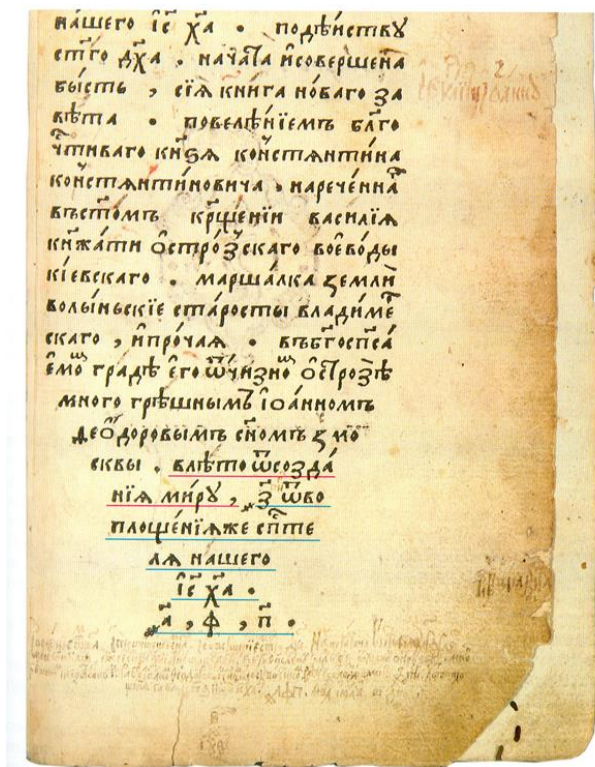 на́шего і҃с х҃а • подѣ́йствꙋ
ст҃го дх҃а , нача́та и҆совершена
бы́сть , сїѧ кни́га но́ваго за
вѣ́та • повелѣ́нїемъ бл҃го
чти́ваго кн҃ѕѧ ко́нстѧнтина
ко́нстѧнти́новича , нарече́нна
въст҃о́мъ кр҃ще́нїи васи́лїѧ
кнѧ́жати ѻ҆стро́зскаго воево́ды
кі́евскаго . марша́лка ꙁемли̇
волы́ньскїе ста́росты владиме
скаго , и҆про́чаѧ • въбг҃оспс҃а́
емоⷨ гра́дѣ е҆го̀ ѿчи́зноⷨ ѻ҆стро́зѣ
мно́го грѣ́шнымъ іѻа́нномъ
ѳео́доровымъ сн҃омъ ꙁмо
сквы . влѣ́то ѿсозда́
нїѧ ми́рꙋ , ҂з҃ ѿво
площе́нїѧже сп҃сте
лѧ нашего
і҃с х҃а •
҂а҃ , ф҃ , п҃ •